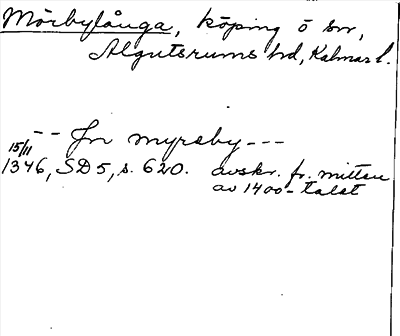 Mörbylånga, köping ö sn,
Algutsrums hd, Kalmar l.
-- Jn myræby ---
15/11
1346, SD 5, s. 620. avskr. fr. mitten
av 1400-talet